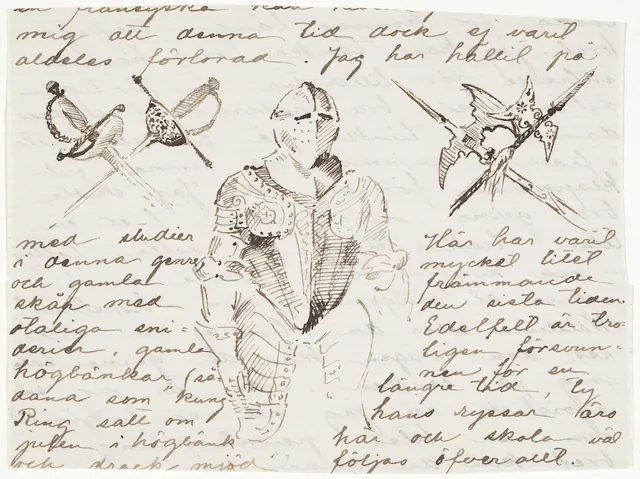 en fransyska kan
mig att denna tid dock ej varit
aldeles förlorad. Jag har hållit på
med studier
i denna genre
och gamla
skåp med
otaliga sni=
derier, gamla
högbänkar (så-
dana som "kung
Ring satt om
julen i högbänk
och drack mjöd")
Här har varit
mycket litet
främmande
den sista tiden.
Edelfelt är tro-
ligen försvun=
nen för en
längre tid, ty
hans ryssar läro
här och skola väl
följas öfver allt.